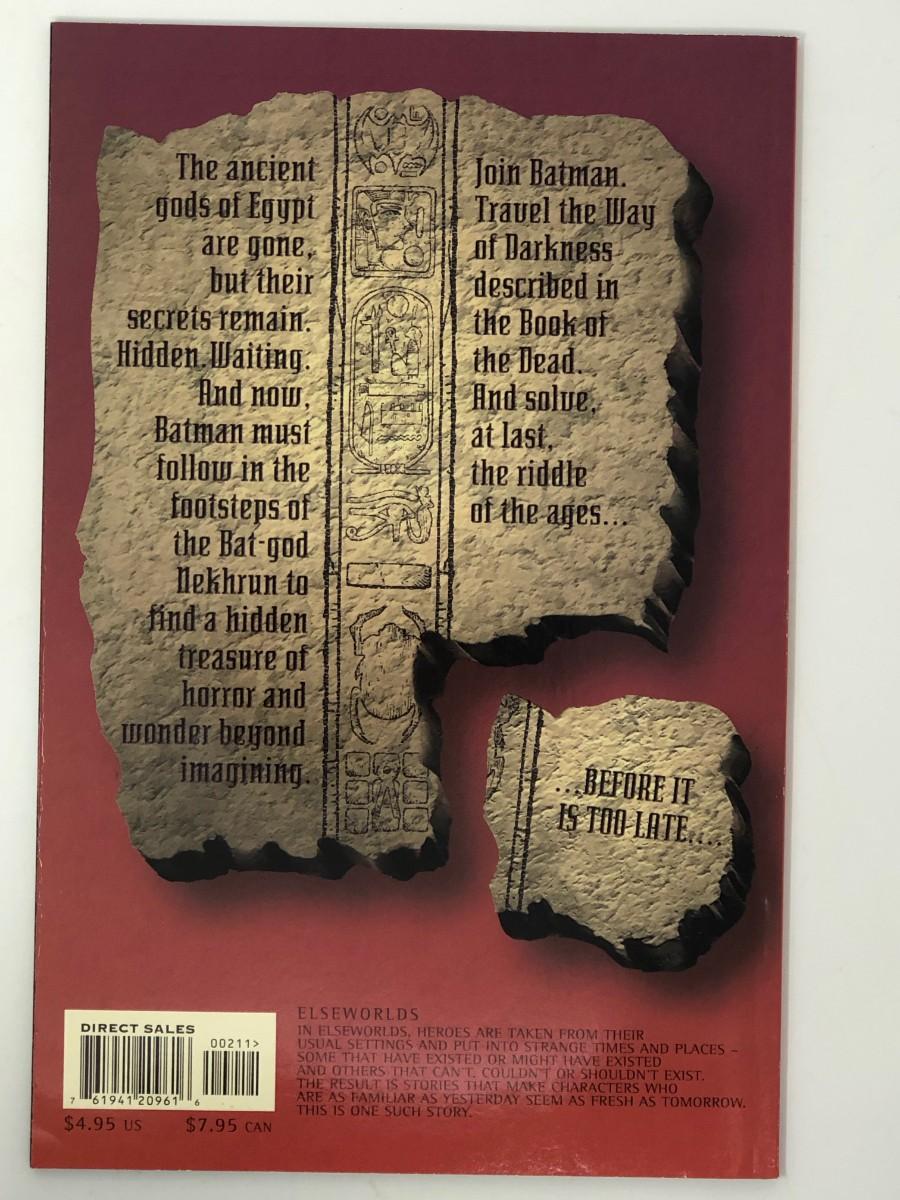 The ancient
gods of Egypt
are gone,
but their
secrets remain.
Hidden. Waiting.
And now,
Batman must
follow in the
footsteps of
the Bat-god
Nekhrun to
find a hidden
treasure of
horror and
wonder beyond
imagining.
Join Batman.
Travel the Way
of Darkness
described in
the Book of
the Dead.
And solve,
at last,
the riddle
of the ages...
...BEFORE IT
IS TOO LATE....
DIRECT SALES
00211>
7 61941 20961 6
$4.95 US $7.95 CAN
ELSEWORLDS
IN ELSEWORLDS, HEROES ARE TAKEN FROM THEIR
USUAL SETTINGS AND PUT INTO STRANGE TIMES AND PLACES –
SOME THAT HAVE EXISTED OR MIGHT HAVE EXISTED
AND OTHERS THAT CAN'T, COULDN'T OR SHOULDN'T EXIST.
THE RESULT IS STORIES THAT MAKE CHARACTERS WHO
ARE AS FAMILIAR AS YESTERDAY SEEM AS FRESH AS TOMORROW.
THIS IS ONE SUCH STORY.